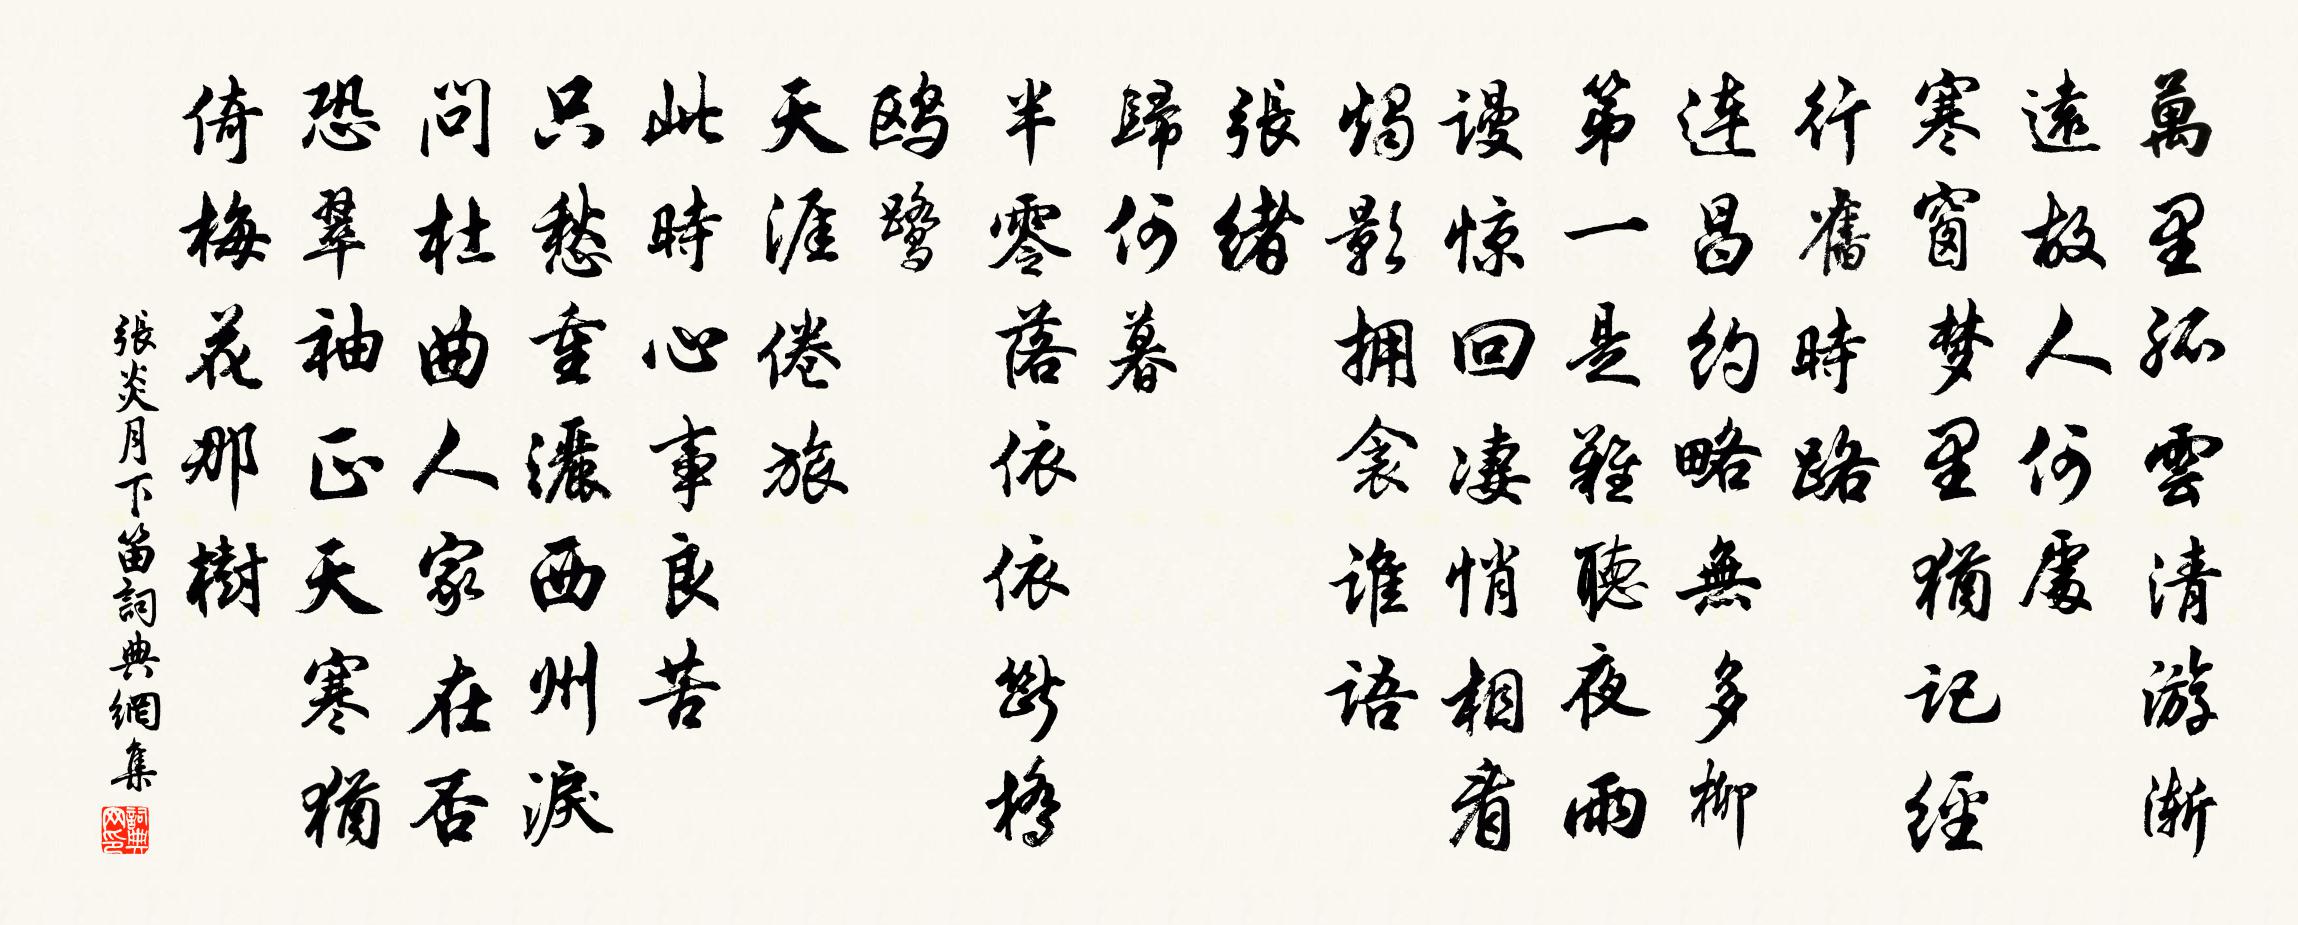 萬里孤雲清游漸
遠故人何處
寒窗梦里猶记經
行舊時路
連昌約略無多柳
第一是難聽夜雨
谩惊回凄悄相看
燭影拥衾谁语
張緒
歸何暮
半零落依依斷橋
鸥鹭
天涯倦旅
此時心事良苦
只愁重灑西州淚
問杜曲人家在否
恐翠袖正天寒猶
倚梅花那樹
張炎月下笛詞典網集
詞典网印